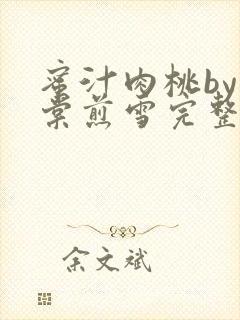 蜜汁肉桃by
棠煎雪完整
余文斌